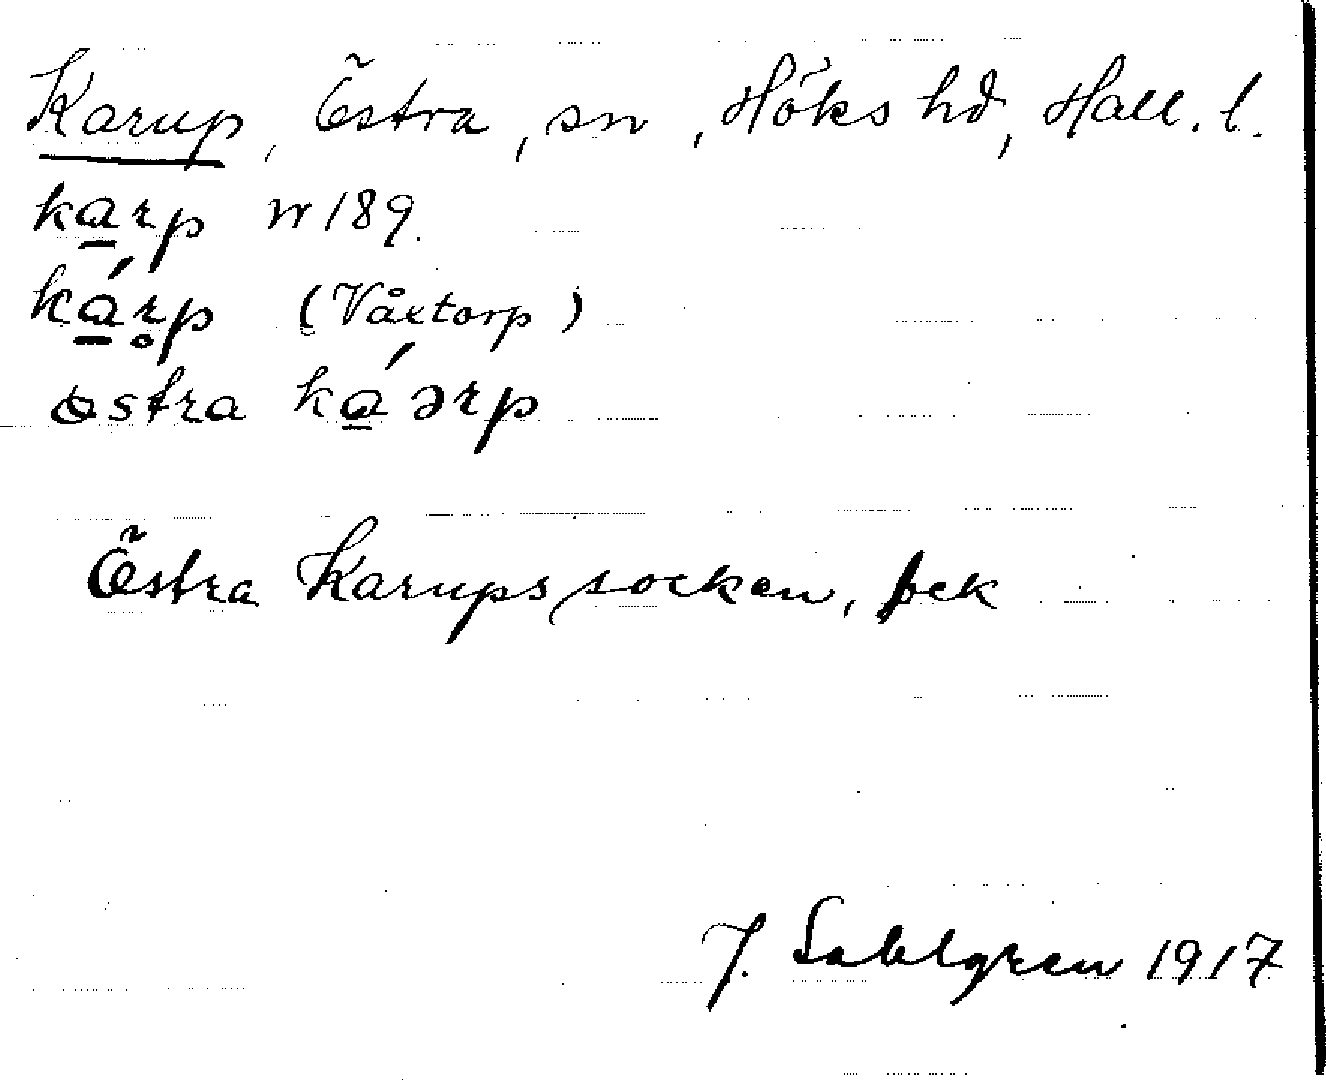 Karup, Östra, sn, Höks hd, Hall. l.
ka̲rp w 189.
ká̲r̥p (Våxtorp)
østra ká̲ərp
Östra Karups socken, bek
J. Sahlgren 1917